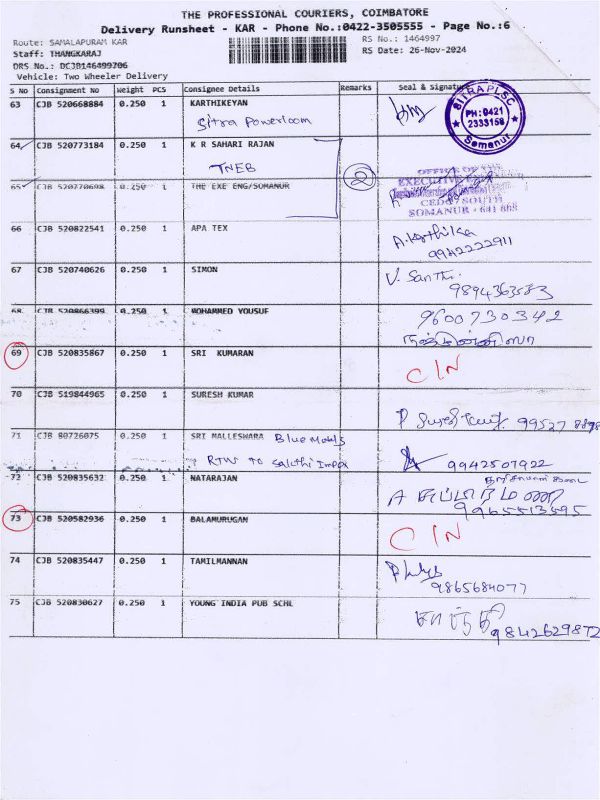 THE PROFESSIONAL COURIERS, COIMBATORE
Delivery Runsheet - KAR - Phone No.:0422-3505555 - Page No.:6
Route: SAMALAPURAM KAR RS No.: 1464997
Staff: THANGKARAJ RS Date: 26-Nov-2024
DRS No.: DCJB146499706
Vehicle: Two Wheeler Delivery
S No Consignment No Weight PCS Consignee Details Remarks Seal & Signature
63 CJB 520668884 0.250 1 KARTHIKEYAN
Sitra Powerloom
SITRAPLSC
PH:0421
2333158
Somanur
64 CJB 520773184 0.250 1 K R SAHARI RAJAN
TNEB
2
65 CJB 520770698 0.250 1 THE EXE ENG/SOMANUR
OFFICE OF THE
EXECUTIVE ENGINEER
CEDC SOUTH
SOMANUR - 641 668
66 CJB 520822541 0.250 1 APA TEX
A.Karthika
9942222911
67 CJB 520740626 0.250 1 SIMON
V. Santhi.
9894363583
68 CJB 520866399 0.250 1 MOHAMMED YOUSUF
9600730342
69 CJB 520835867 0.250 1 SRI KUMARAN
C/N
70 CJB 519844965 0.250 1 SURESH KUMAR
P Suresh Kumar 99527 8898
71 CJB 80726075 0.250 1 SRI MALLESWARA Blue Metals
RTW To Sakthi Impex
9942507922
72 CJB 520835632 0.250 1 NATARAJAN
9965513595
73 CJB 520582936 0.250 1 BALAMURUGAN
C/N
74 CJB 520835447 0.250 1 TAMILMANNAN
9865684077
75 CJB 520830627 0.250 1 YOUNG INDIA PUB SCHL
9842629872